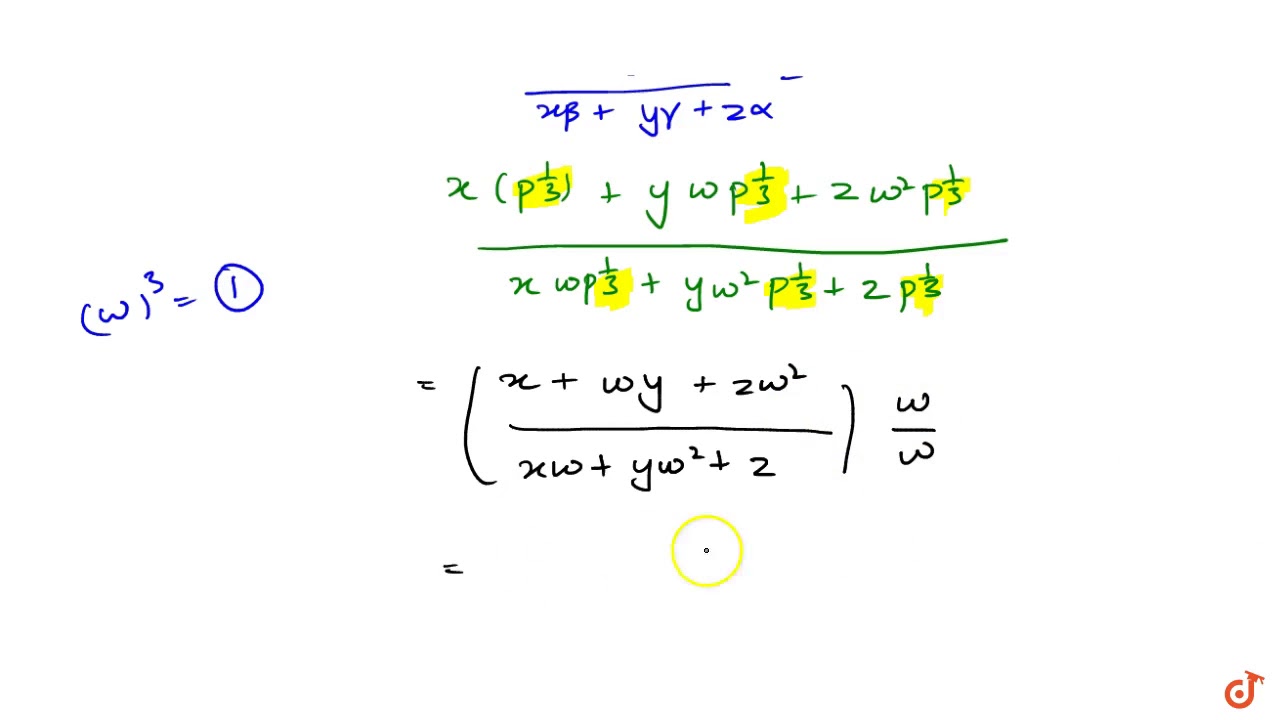 xβ + yγ + zα
x (p^1/3) + y ω p^1/3 + z ω² p^1/3
x ω p^1/3 + y ω² p^1/3 + z p^1/3
(ω)³ = 1
= ( x + ωy + zω² / xω + yω² + z ) ω/ω
=